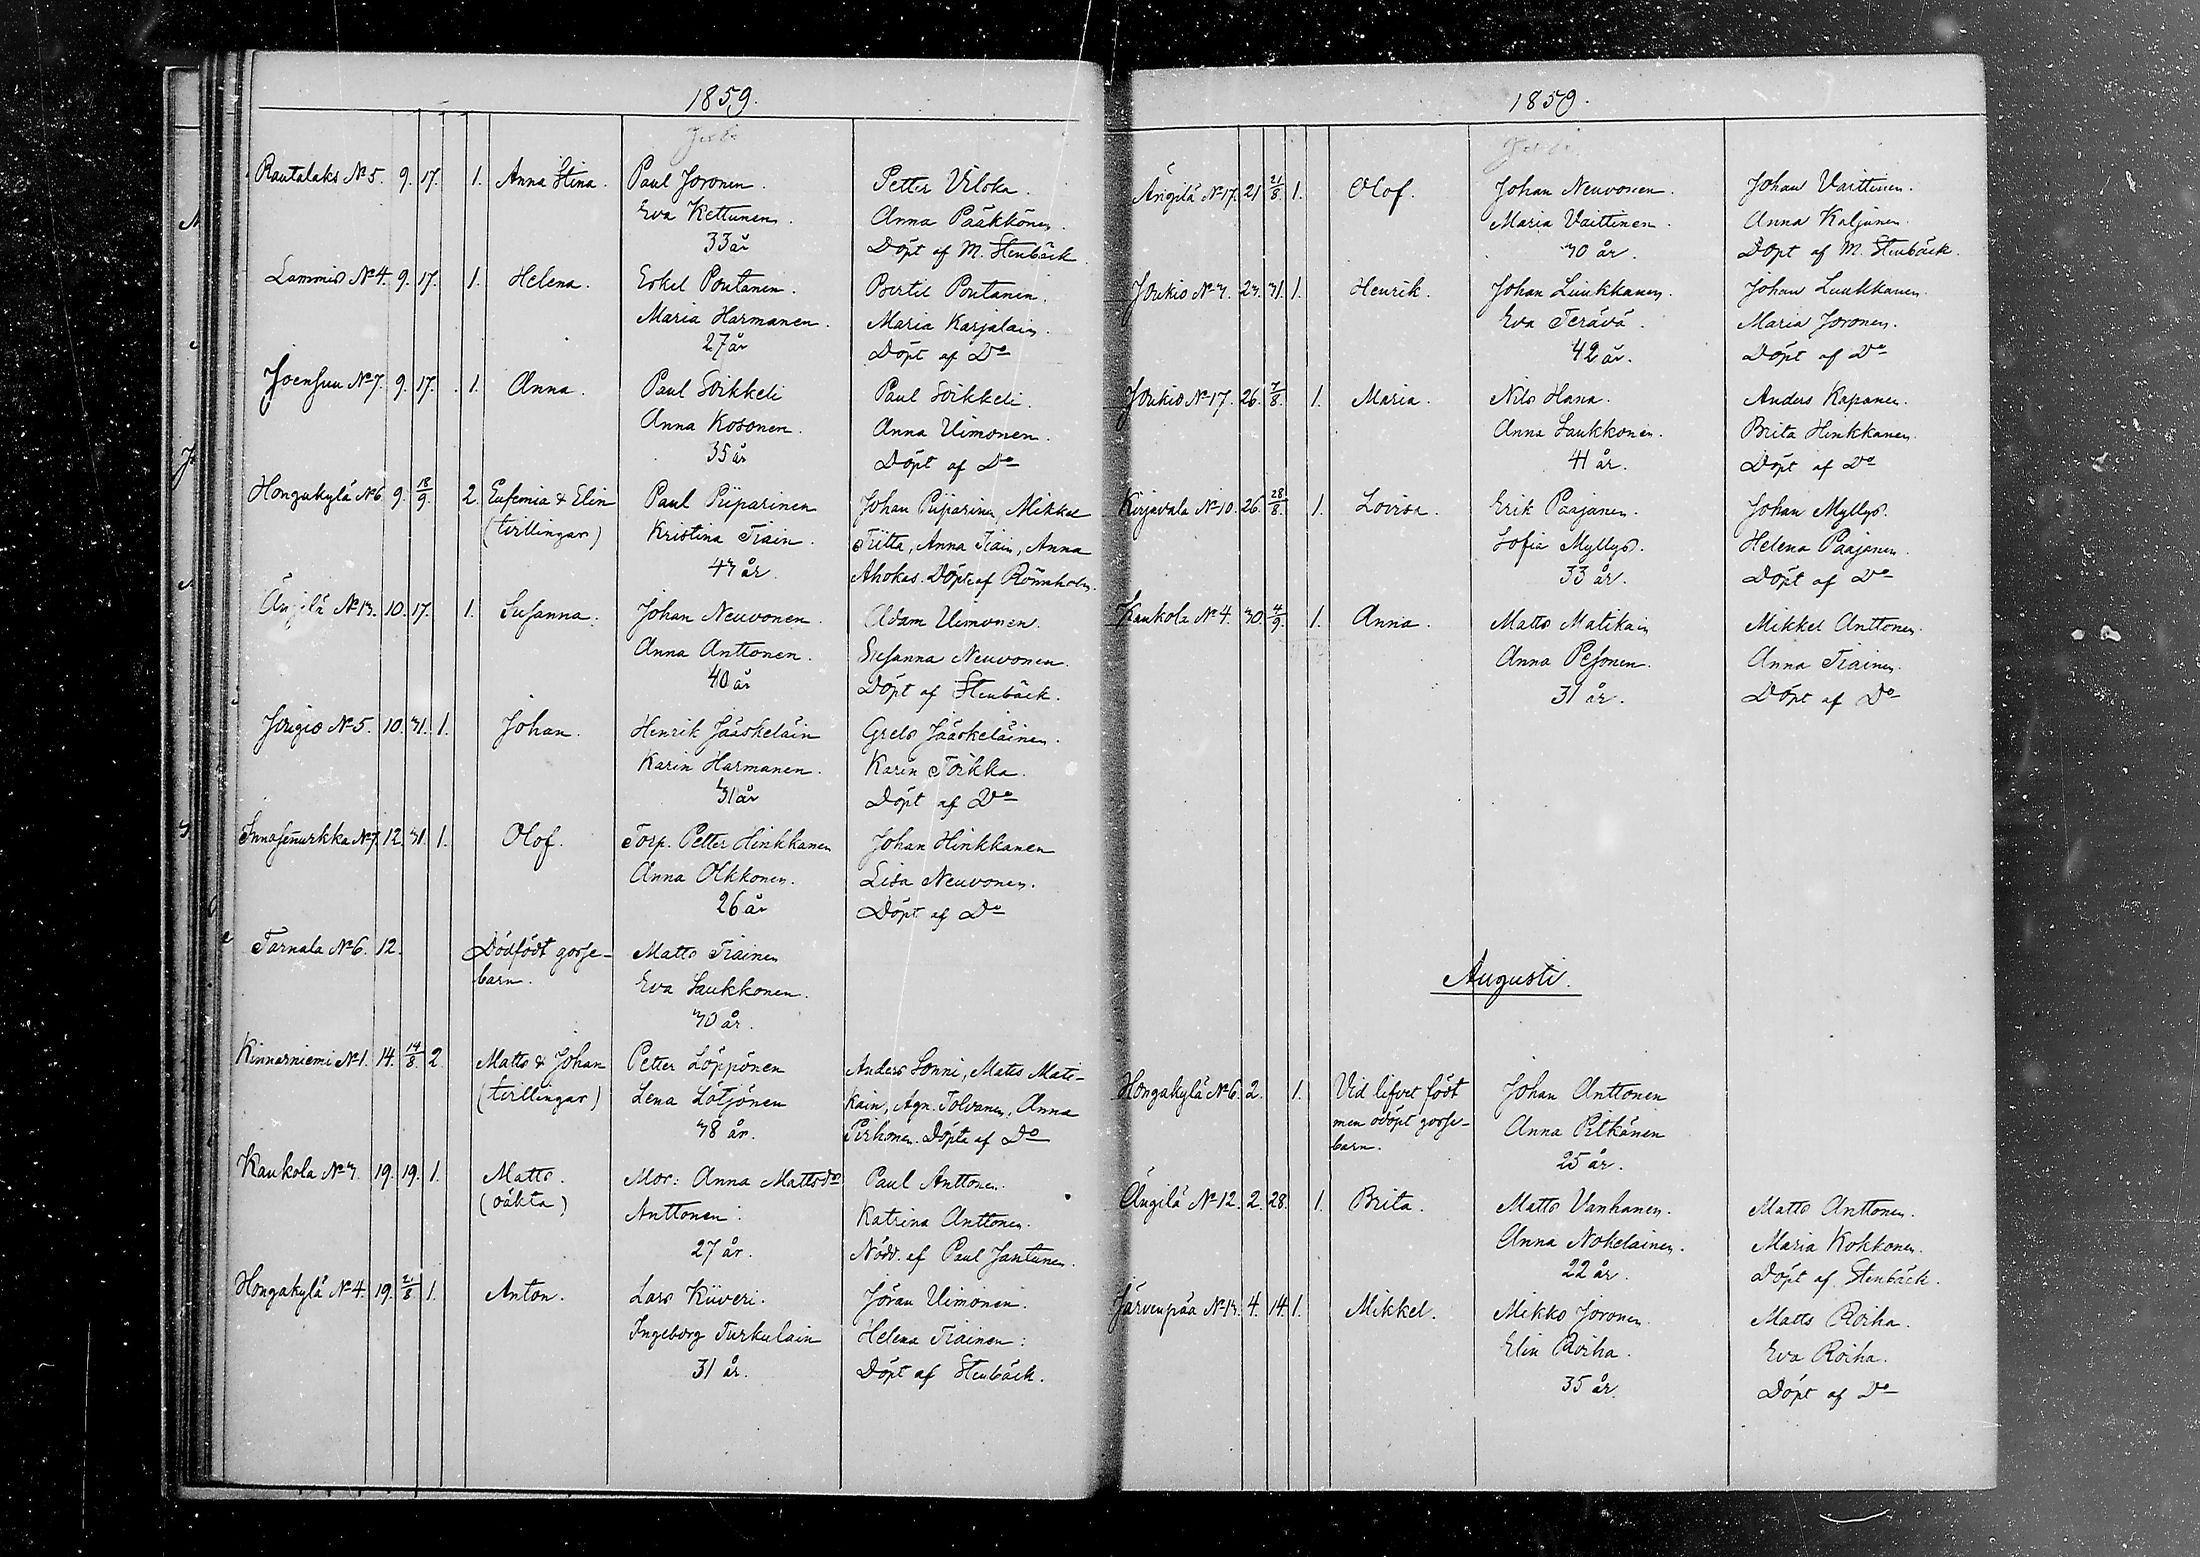 1859.
Rautalaks № 5. 9. 17. 1. Anna Stina. Paul Joronen. Petter Vilska
Eva Kettunen. Anna Pääkkönen.
33 år Döpt af M. Stenbäck
Lammis № 4. 9. 17. 1. Helena. Eskel Pontanen. Bertil Pontanen.
Maria Harmanen. Maria Karjalain.
27 år Döpt af Do
Joensuu № 7. 9. 17. 1. Anna. Paul Soikkeli Paul Soikkeli.
Anna Kosonen. Anna Uimonen.
35 år Döpt af Do
Hongakylä № 6. 9. 18/9. 2. Eufemia & Elin Paul Piiparinen Johan Piiparinen, Mikkel
(tvillingar) Kristina Tiain. Tiitta, Anna Tiain, Anna
43 år. Ahokas. Döpt af Rönnholm.
Ängilä № 13. 10. 17. 1. Susanna. Johan Neuvonen. Adam Uimonen.
Anna Anttonen. Susanna Neuvonen.
40 år Döpt af Stenbäck.
№ 5. 10. 31. 1. Johan. Henrik Jääskeläin Grels Jääskeläinen.
Karin Harmanen. Karin Toikka.
31 år Döpt af Do
Innasennurkka № 7. 12. 31. 1. Olof. Torp. Petter Hinkkanen Johan Hinkkanen
Anna Olkkonen. Lisa Neuvonen.
26 år Döpt af Do
Tarnala № 6. 12. Dödfödt gosse- Matts Tiainen
barn. Eva Laukkonen.
30 år.
Kinnarniemi № 1. 14. 14/8. 2 Matts & Johan Petter Löppönen Anders Sonni, Matts Mati-
(tvillingar) Lena Lötjönen kain, Agn. Tolvanen, Anna
38 år. Pirhonen. Döpte af Do
Kaukola № 3. 19. 19. 1. Matts. Mor: Anna Mattsdr Paul Anttonen.
(oäkta) Anttonen. Katrina Anttonen.
27 år. Nöddr. af Paul Jantunen.
Hongakylä № 4. 19. 21/8 1. Anton. Lars Kiiveri. Jöran Uimonen.
Ingeborg Turkulain Helena Tiainen.
31 år. Döpt af Stenbäck.
1859.
Ängilä № 17. 21 21/8. 1. Olof. Johan Neuvonen. Johan Vaittinen.
Maria Vaittinen. Anna Kaljunen.
30 år. Döpt af M. Stenbäck.
Joukio № 3. 23. 31. 1. Henrik. Johan Luukkanen. Johan Luukkanen.
Eva Terävä. Maria Joronen.
42 år. Döpt af Do
Joukio № 17. 26. 7/8. 1. Maria. Nils Hana. Anders Kapanen.
Anna Laukkonen. Brita Hinkkanen.
41 år. Döpt af Do
Kirjavala № 10. 26. 28/8. 1. Lovisa. Erik Paajanen. Johan Myllys.
Sofia Myllys. Helena Paajanen.
33 år. Döpt af Do
Kaukola № 4. 30. 4/9. 1. Anna. Matts Matikain Mikkel Anttonen.
Anna Pesonen. Anna Tiainen.
31 år. Döpt af Do
Augusti.
Hongakylä № 6. 2. 1. Vid lifvet födt Johan Anttonen
men odöpt gosse- Anna Pitkänen
barn. 25 år.
Ängilä № 12. 2. 28. 1. Brita. Matts Vanhanen. Matts Anttonen.
Anna Nokelainen. Maria Kokkonen.
22 år. Döpt af Stenbäck.
Järvenpää № 13. 4. 14. 1. Mikkel. Mikko Joronen. Matts Roiha.
Elin Roiha. Eva Roiha.
35 år. Döpt af Do